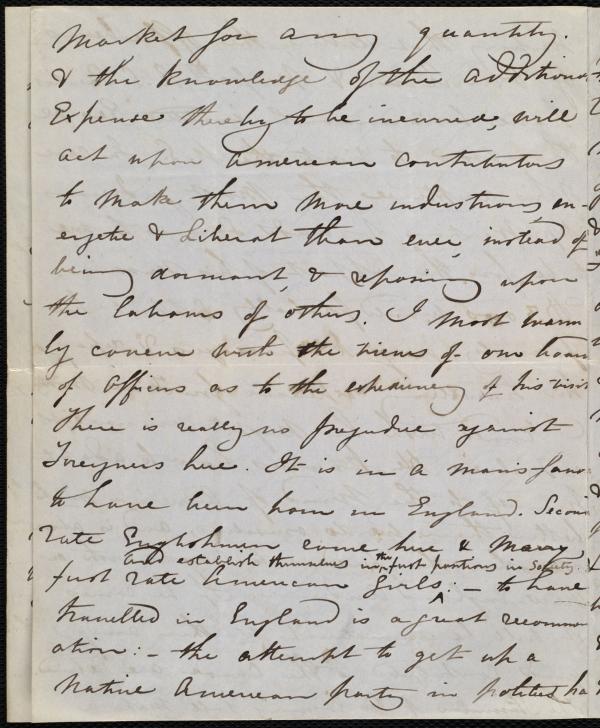 Market for any quantity.
& the knowledge of the additiona
Expense thereby to be incurred, will
act upon American contributors
to make them more industrious, en-
ergetic & Liberal than ever, instead of
being dormant, & reposing upon
the labours of others. I most warm
ly concur with the views of our board
of Officers as to the expediency of his visit
There is really no prejudice against
Foreigners here. It is in a man's favor
to have been born in England. Secon
rate Englishmen come here & Marry
and establish themselves in the first positions in Society.
first rate American Girls: - to have
travelled in England is a great recomm
ation: - the attempt to get up a
Native American party in politics ha